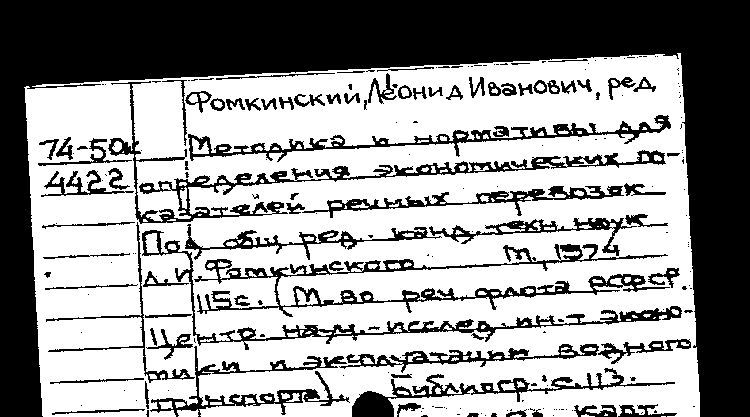 Фомкинский, Леонид Иванович, ред.
74-50к Методика и нормативы для
4422 определения экономических по-
казателей речных перевозок
Под общ. ред. канд. техн. наук
Л.И. Фомкинского. М., 1974
115с. (М-во реч. флота РСФСР.
Центр. науч.-исслед. ин-т эконо-
мики и эксплуатации водного
транспорта). Библиогр.: с.113.
карт.